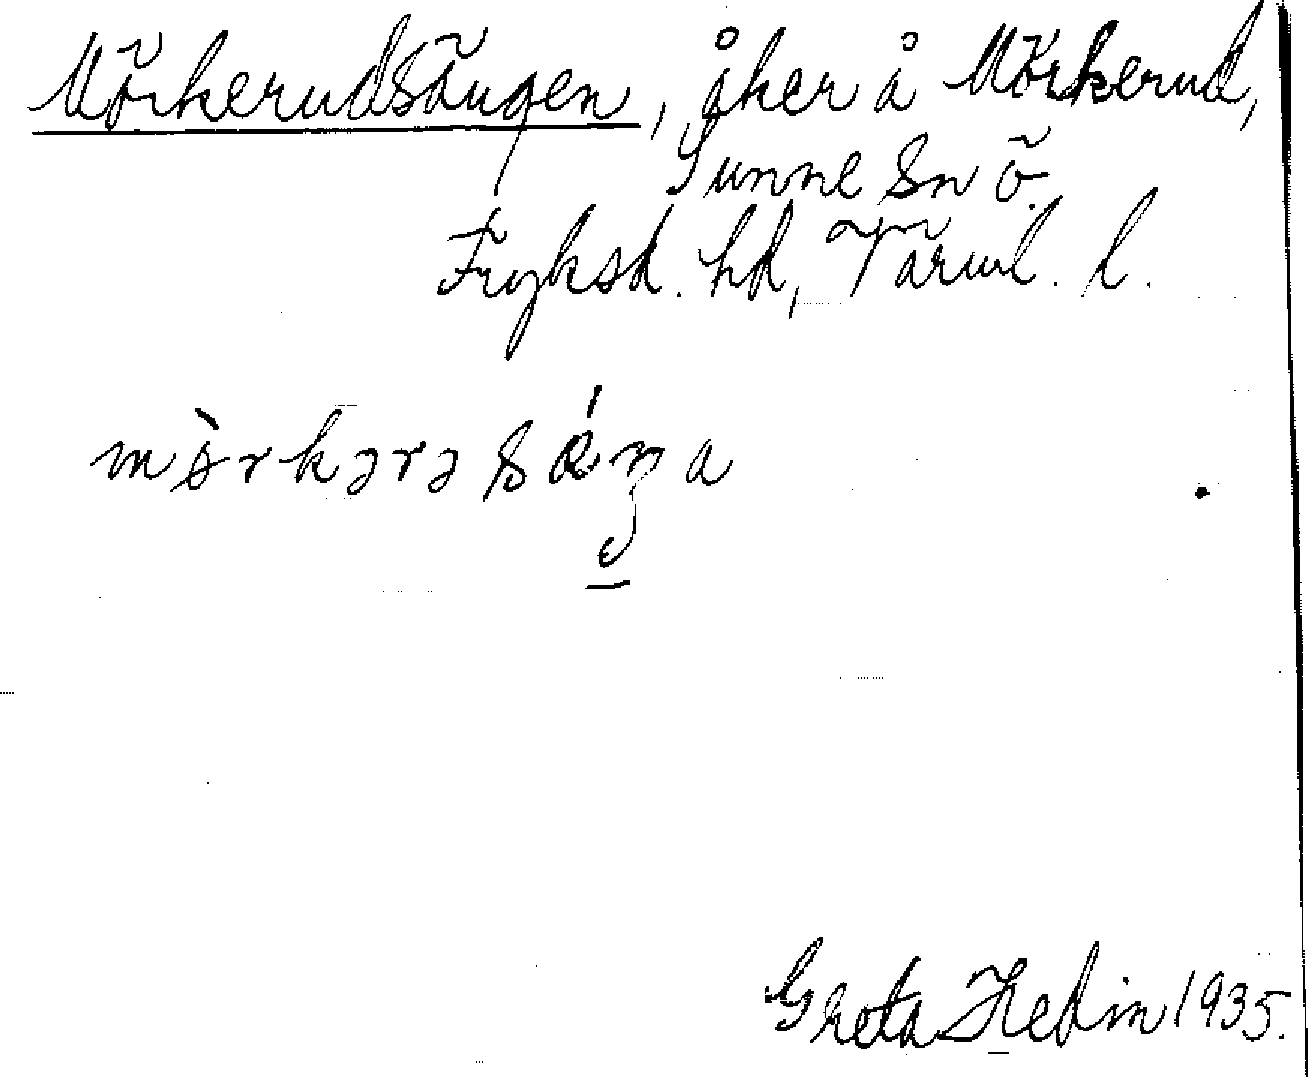 Mörkerudsängen, åker å Mörkerud,
Sunne sn ö.
Fryksd. hd, Värml. l.
Greta Hedin 1935.